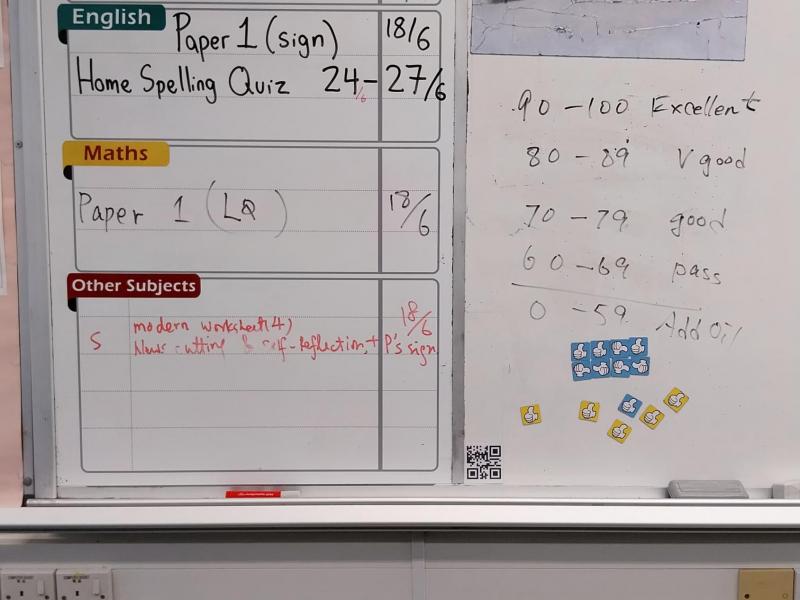 English
Paper 1 (sign) 18/6
Home Spelling Quiz 24/6 - 27/6
Maths
Paper 1 (LQ) 18/6
Other Subjects
S modern worksheet(4) 18/6
News cutting & self-Reflection + P's sign
90 - 100 Excellent
80 - 89 V good
70 - 79 good
60 - 69 pass
0 - 59 Add Oil